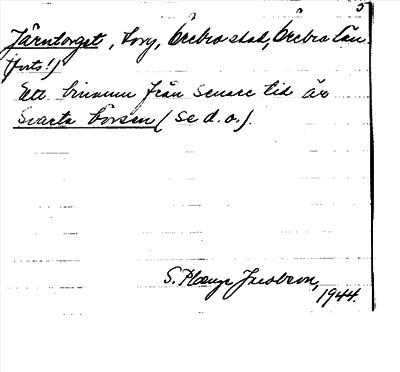 5
Järntorget, torg, Örebro stad, Örebro län.
(forts!)
Ett binamn från senare tid är
Svarta börsen (se d. o.).
S. Plœnge Jacobson,
1944.